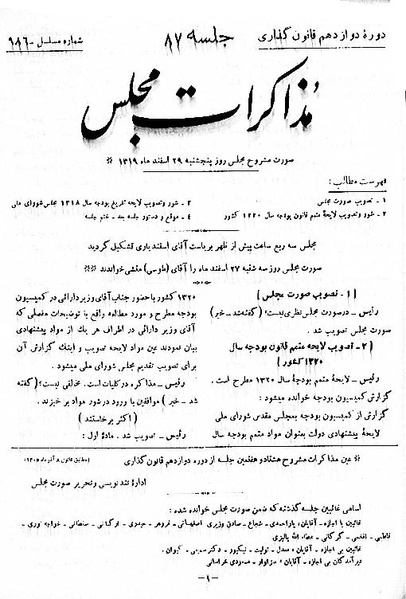 دورهٔ دوازدهم قانون گذاری
جلسه ۸۷
شماره مسلسل - ۹۸۶
مذاکرات مجلس
صورت مشروح مجلس روز پنجشنبه ۲۹ اسفند ماه ۱۳۱۹
فهرست مطالب:
۱ - تصویب صورت مجلس
۲ - شور و تصویب لایحهٔ متمم قانون بودجه سال ۱۳۲۰ کشور
۳ - شور و تصویب لایحه تفریغ بودجه سال ۱۳۱۸ مجلس شورای ملی
۴ - موقع و دستور جلسه بعد - ختم جلسه
مجلس سه ربع ساعت پیش از ظهر بریاست آقای اسفندیاری تشکیل گردید
صورت مجلس روز سه شنبه ۲۷ اسفند ماه را آقای (طوسی) منشی خواندند
[۱ - تصویب صورت مجلس]
رئیس - در صورت مجلس نظری نیست؟ (گفته شد - خیر)
صورت مجلس تصویب شد.
[۲ - تصویب لایحه متمم قانون بودجه سال
۱۳۲۰ کشور]
رئیس - لایحهٔ متمم بودجهٔ سال ۱۳۲۰ مطرح است.
گزارش کمیسیون بودجه خوانده میشود:
گزارش از کمیسیون بودجه بمجلس مقدس شورای ملی
لایحهٔ پیشنهادی دولت بعنوان مواد متمم بودجه سال
۱۳۲۰ کشور با حضور جناب آقای وزیر دارائی در کمیسیون
بودجه مطرح و مورد مطالعه واقع با توضیحات مفصلی که
آقای وزیر دارائی در اطراف هر یک از مواد پیشنهادی
بیان نمودند عین مواد لایحه تصویب و اینک گزارش آن
برای تصویب تقدیم مجلس ملی میشود.
رئیس - مذاکره در کلیات است. مخالفی نیست؟ (گفته
شد - خیر) موافقین با ورود در شور مواد برخیزند.
(اکثر برخاستند)
رئیس - تصویب شد. مادهٔ اول:
عین مذاکرات مشروح هشتاد و هفتمین جلسه از دوره دوازدهم قانون گذاری
اداره تند نویسی و تحریر صورت مجلس
اسامی غائبین جلسه گذشته که ضمن صورت مجلس خوانده شده:
- ۱ -